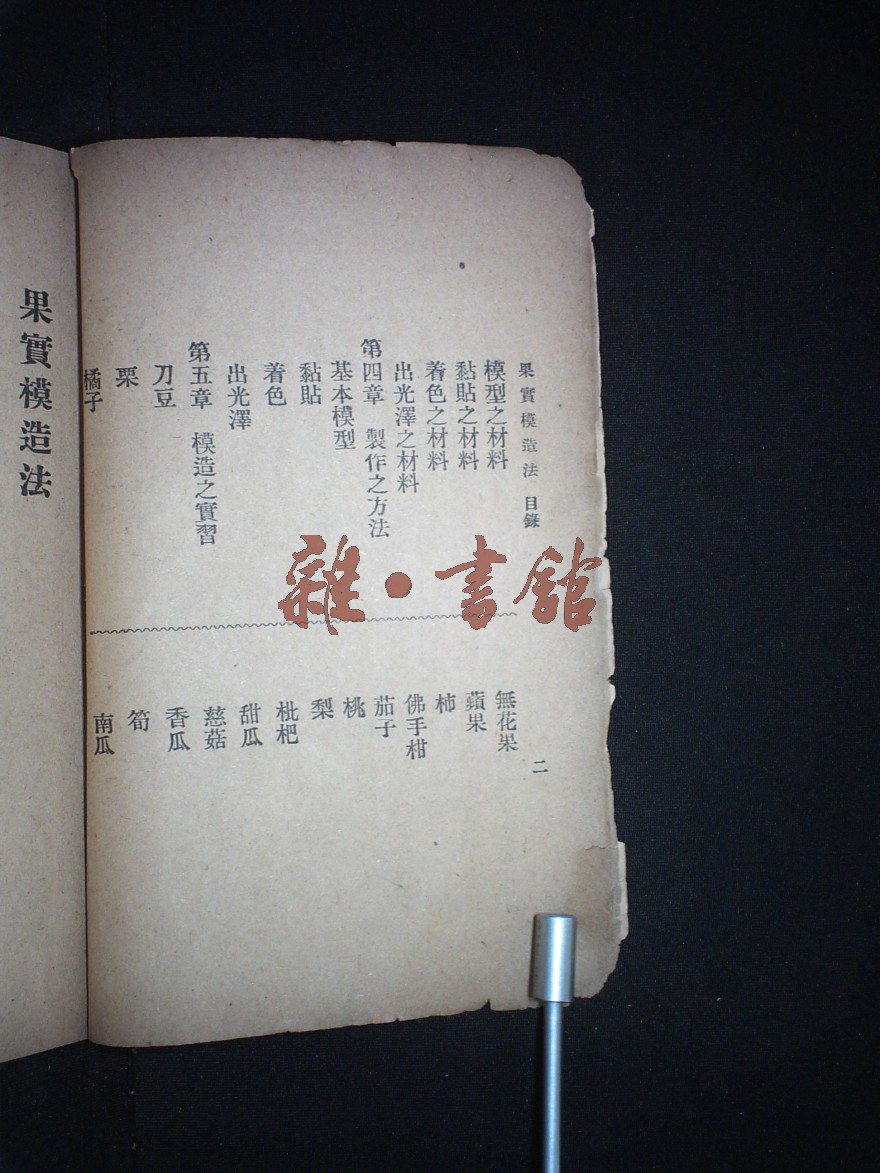 果實模造法 目錄
二
模型之材料
黏貼之材料
着色之材料
出光澤之材料
第四章 製作之方法
基本模型
黏貼
着色
出光澤
第五章 模造之實習
刀豆
栗
橘子
無花果
蘋果
柿
佛手柑
茄子
桃
梨
枇杷
甜瓜
慈菇
香瓜
筍
南瓜
果實模造法
雜·書館